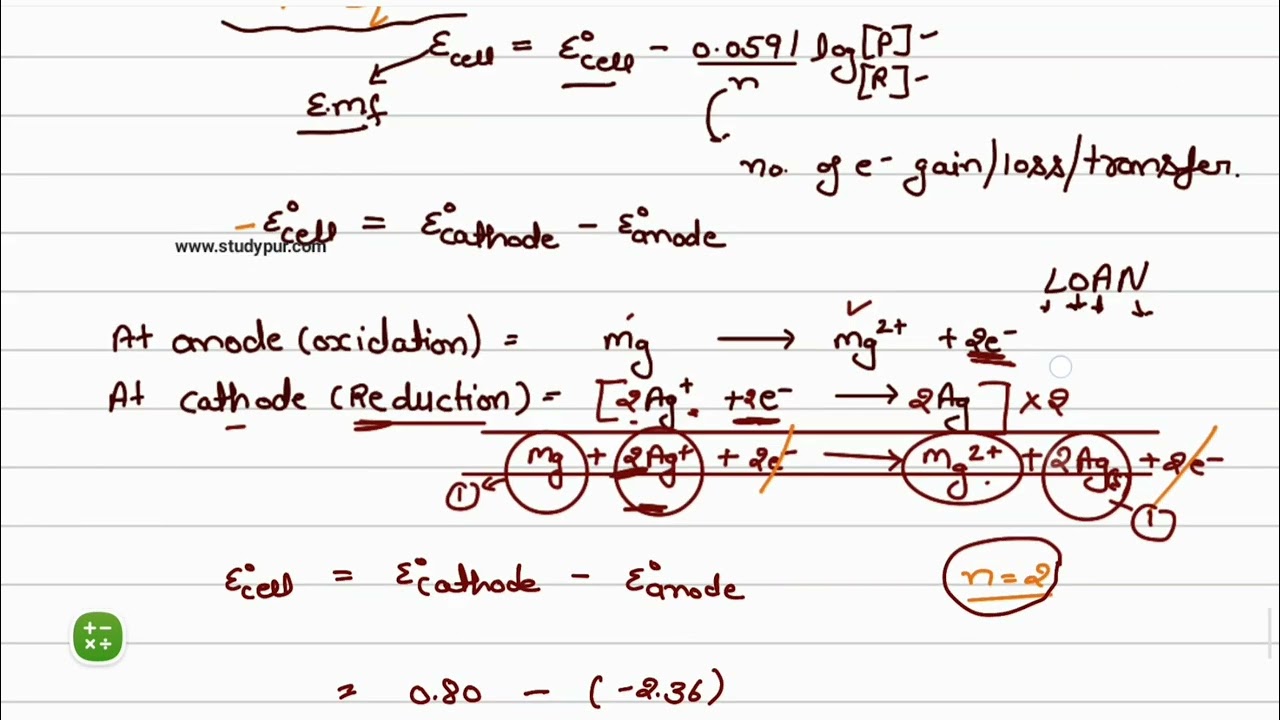 Ɛcell = Ɛ°cell - 0.0591/n log [P]/[R]
Ɛ.mf
no. of e⁻ gain/loss/transfer.
Ɛ°cell = Ɛ°cathode - Ɛ°anode
www.studypur.com
LOAN
At anode (oxidation) = mg → mg²⁺ + 2e⁻
At cathode (Reduction) = [2Ag⁺ + 2e⁻ → 2Ag] × 2
mg + 2Ag⁺ + 2e⁻ → mg²⁺ + 2Ag(s) + 2e⁻
① ①
Ɛ°cell = Ɛ°cathode - Ɛ°anode n = 2
= 0.80 - (-2.36)